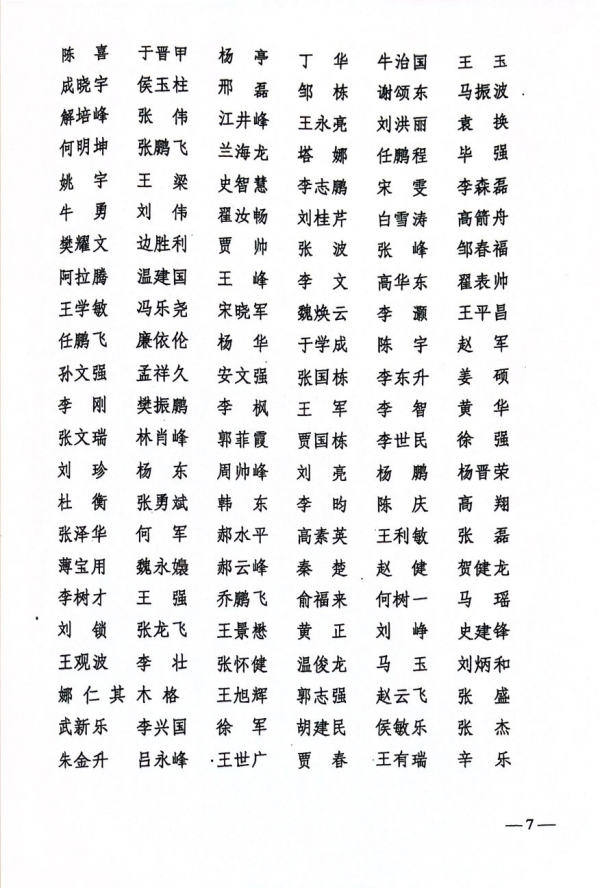 陈　喜　于晋甲　杨　亭　丁　华　牛治国　王　玉
成晓宇　侯玉柱　邢　磊　邹　栋　谢颂东　马振波
解培峰　张　伟　江井峰　王永亮　刘洪丽　袁　换
何明坤　张鹏飞　兰海龙　塔　娜　任鹏程　毕　强
姚　宇　王　梁　史智慧　李志鹏　宋　雯　李森磊
牛　勇　刘　伟　翟汝畅　刘桂芹　白雪涛　高箭舟
樊耀文　边胜利　贾　帅　张　波　张　峰　邹春福
阿拉腾　温建国　王　峰　李　文　高华东　翟表帅
王学敏　冯乐尧　宋晓军　魏焕云　李　灏　王平昌
任鹏飞　廉依伦　杨　华　于学成　陈　宇　赵　军
孙文强　孟祥久　安文强　张国栋　李东升　姜　硕
李　刚　樊振鹏　李　枫　王　军　李　智　黄　华
张文瑞　林肖峰　郭菲霞　贾国栋　李世民　徐　强
刘　珍　杨　东　周帅峰　刘　亮　杨　鹏　杨晋荣
杜　衡　张勇斌　韩　东　李　昀　陈　庆　高　翔
张泽华　何　军　郝水平　高素英　王利敏　张　磊
薄宝用　魏永嫒　郝云峰　秦　楚　赵　健　贺健龙
李树才　王　强　乔鹏飞　俞福来　何树一　马　瑶
刘　锁　张龙飞　王景懋　黄　正　刘　峥　史建锋
王观波　李　壮　张怀健　温俊龙　马　玉　刘炳和
娜仁其木格　王旭辉　郭志强　赵云飞　张　盛
武新乐　李兴国　徐　军　胡建民　侯敏乐　张　杰
朱金升　吕永峰　王世广　贾　春　王有瑞　辛　乐
—7—